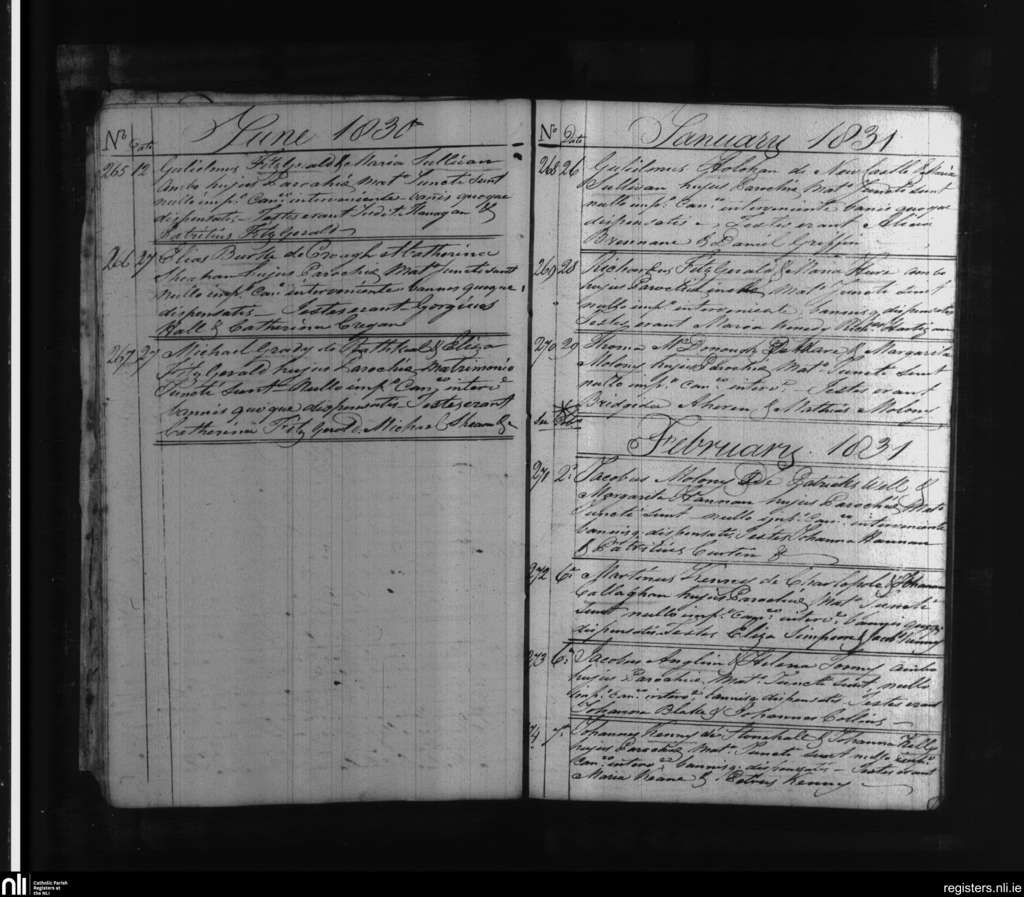 June 1830
No Date
265 12 Gulielmus FitzGerald & Maria Sullivan
Ambo hujus Parochiæ Matº Juncti sunt
nullo impº Canº interveniente bannis quoque
dispensatis - Testes erant Judit Flanagan &
Patritius FitzGerald
266 27 Elias Burke de Crough & Catherina
Sheehan hujus Parochiæ Matº Juncti sunt
nullo impº Canº interveniente bannis quoque
dispensatis - Testes erant Gorgius
Hall & Catherina Cregan
267 27 Michael Grady de Rathkeal & Eliza
FitzGerald hujus Parochiæ Matrimonio
Juncti sunt Nullo impº Canº interve
bannis quoque dispensatis - Testes erant
Catherina FitzGerald Michae Sheean &
January 1831
No Date
268 26 Gulielmus Holohan de New Castle & Maria
Sullivan hujus Parochiæ Matº Juncti sunt
nullo impº Canº interveniente bannis quoque
dispensatis - Testes erant Alicia
Brennane & Daniel Griffin
269 28 Richardus FitzGerald & Maria ambo
hujus Parochiæ Matº Juncti sunt
nullo impº interveniente bannisq dispensatis
Testes erant Maria
270 29 Thoma McDonough & Margarita
Molony hujus Parochiæ Matº Juncti sunt
nullo impº Canº interve Testes erant
Bridgida Aheren & Mathias Molony
February 1831
271 2 Jacobus Molony De Patricks Well &
Margarita Hannan hujus Parochiæ Matº
Juncti sunt nullo impº Canº interveniente
bannisq dispensatis Testes Johanna Hannan
& Patritius Curtin &
272 6 Martinus Kenny de & Johanna
Callaghan hujus Parochiæ Matº Juncti
Sunt nullo impº Canº interve bannis quoq
dispensatis Testes Eliza Simpson & Jacobº Kenny
273 6 Jacobus Anglim & Helena Torny ambo
hujus Parochiæ Matº Juncti sunt nullo
impº canº interve bannisq dispensatis Testes erant
Johanna Blake & Johannes Collins
74 7 Johannes Kenny de Stonehall & Johanna Kelly
hujus Parochiæ Matº Juncti sunt nullo impº
Canº interve bannisq dispensatis - Testes erant
Maria Keane & Petrus Kenny
nli
Catholic Parish
Registers at
the NLI
registers.nli.ie